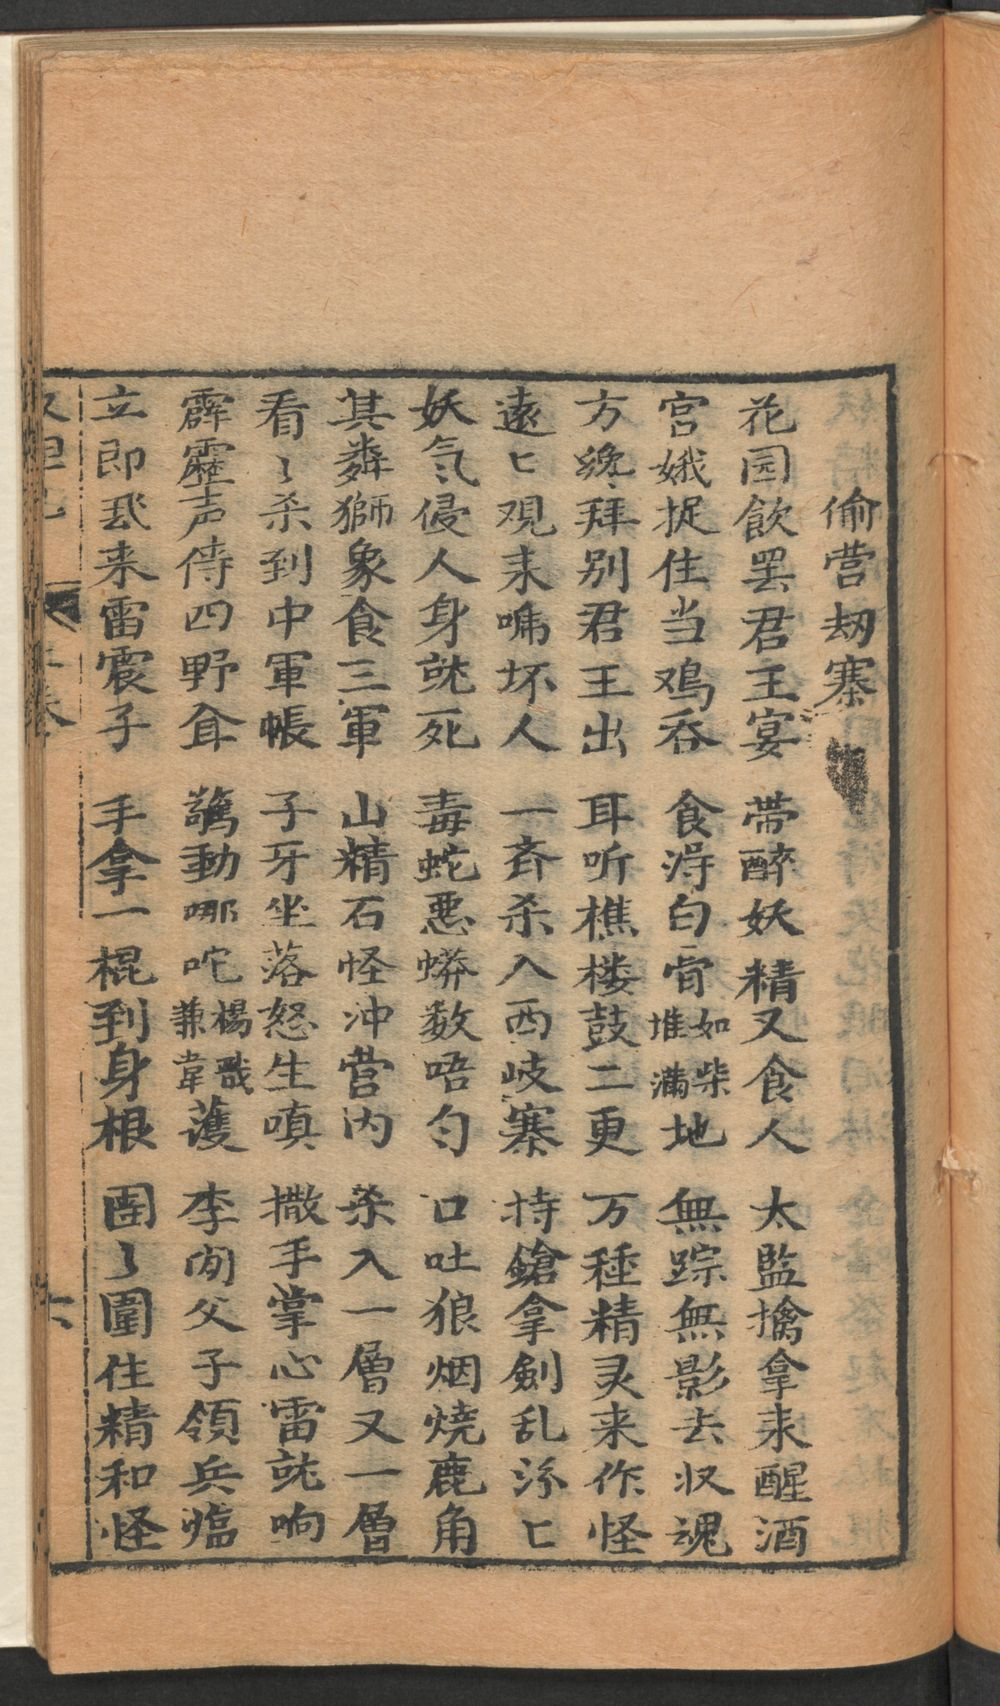 偷营刼寨
花园飲罢君王宴 带醉妖精又食人 太監擒拿来醒酒
宫娥捉住当鸡吞 食淂白骨如柴堆滿地 無踪無影去收魂
方纔拜别君王出 耳听樵楼鼓二更 万種精灵来作怪
遠匕观来嘥坏人 一斉杀入西岐寨 持鎗拿劍乱紛匕
妖气侵人身就死 毒蛇悪蟒数唔匀 口吐狼烟燒鹿角
其粦獅象食三軍 山精石怪冲营内 杀入一層又一層
看〻杀到中軍帳 子牙坐落怒生嗔 撒手掌心雷就响
霹靂声传四野耸 驚動哪咜楊戩兼韋護 李闵父子領兵臨
立即飛来雷震子 手拿一棍到身根 团〻圍住精和怪
二卷
六